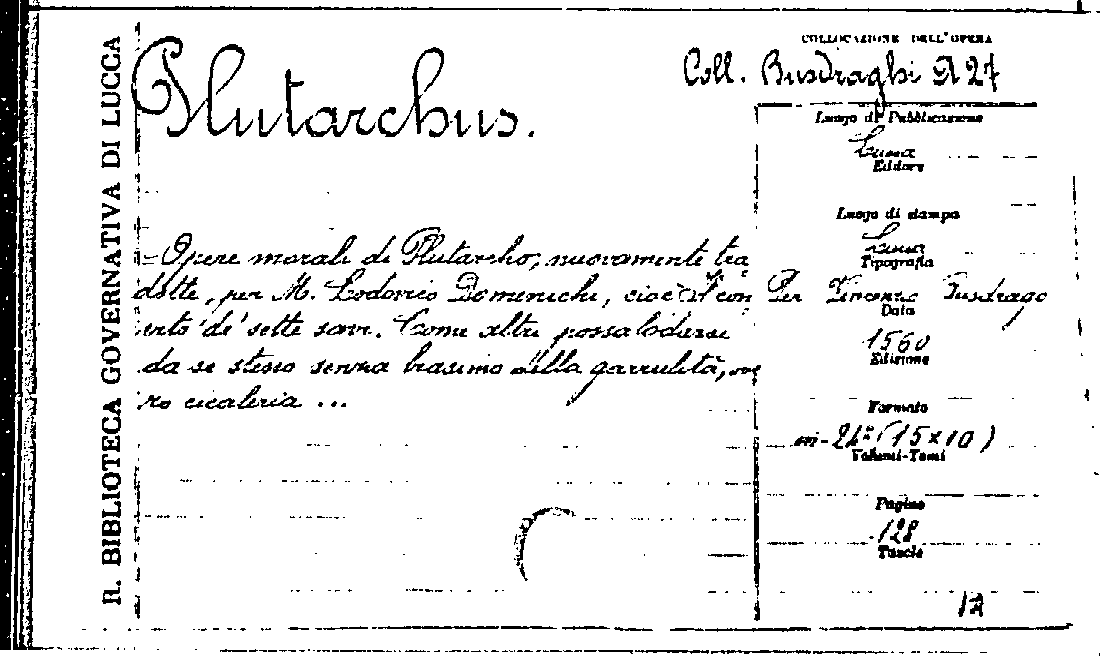 R. BIBLIOTECA GOVERNATIVA DI LUCCA
Plutarchus.
COLLOCAZIONE DELL'OPERA
Coll. Busdraghi A 27
- Opere morali di Plutarcho, nuovamente tra
dotte, per M. Lodovico Domenichi, cioè il con
vito de' sette savi. Come altri possa lodarsi
da se stesso senza biasimo della garrulità, ove
ro cicaleria ...
Luogo di Pubblicazione
Lucca
Editore
Luogo di stampa
Lucca
Tipografia
Per Vincenzo Busdrago
Data
1560
Edizione
Formato
in-24º (15x10)
Volumi-Tomi
Pagine
128
Tavole
12